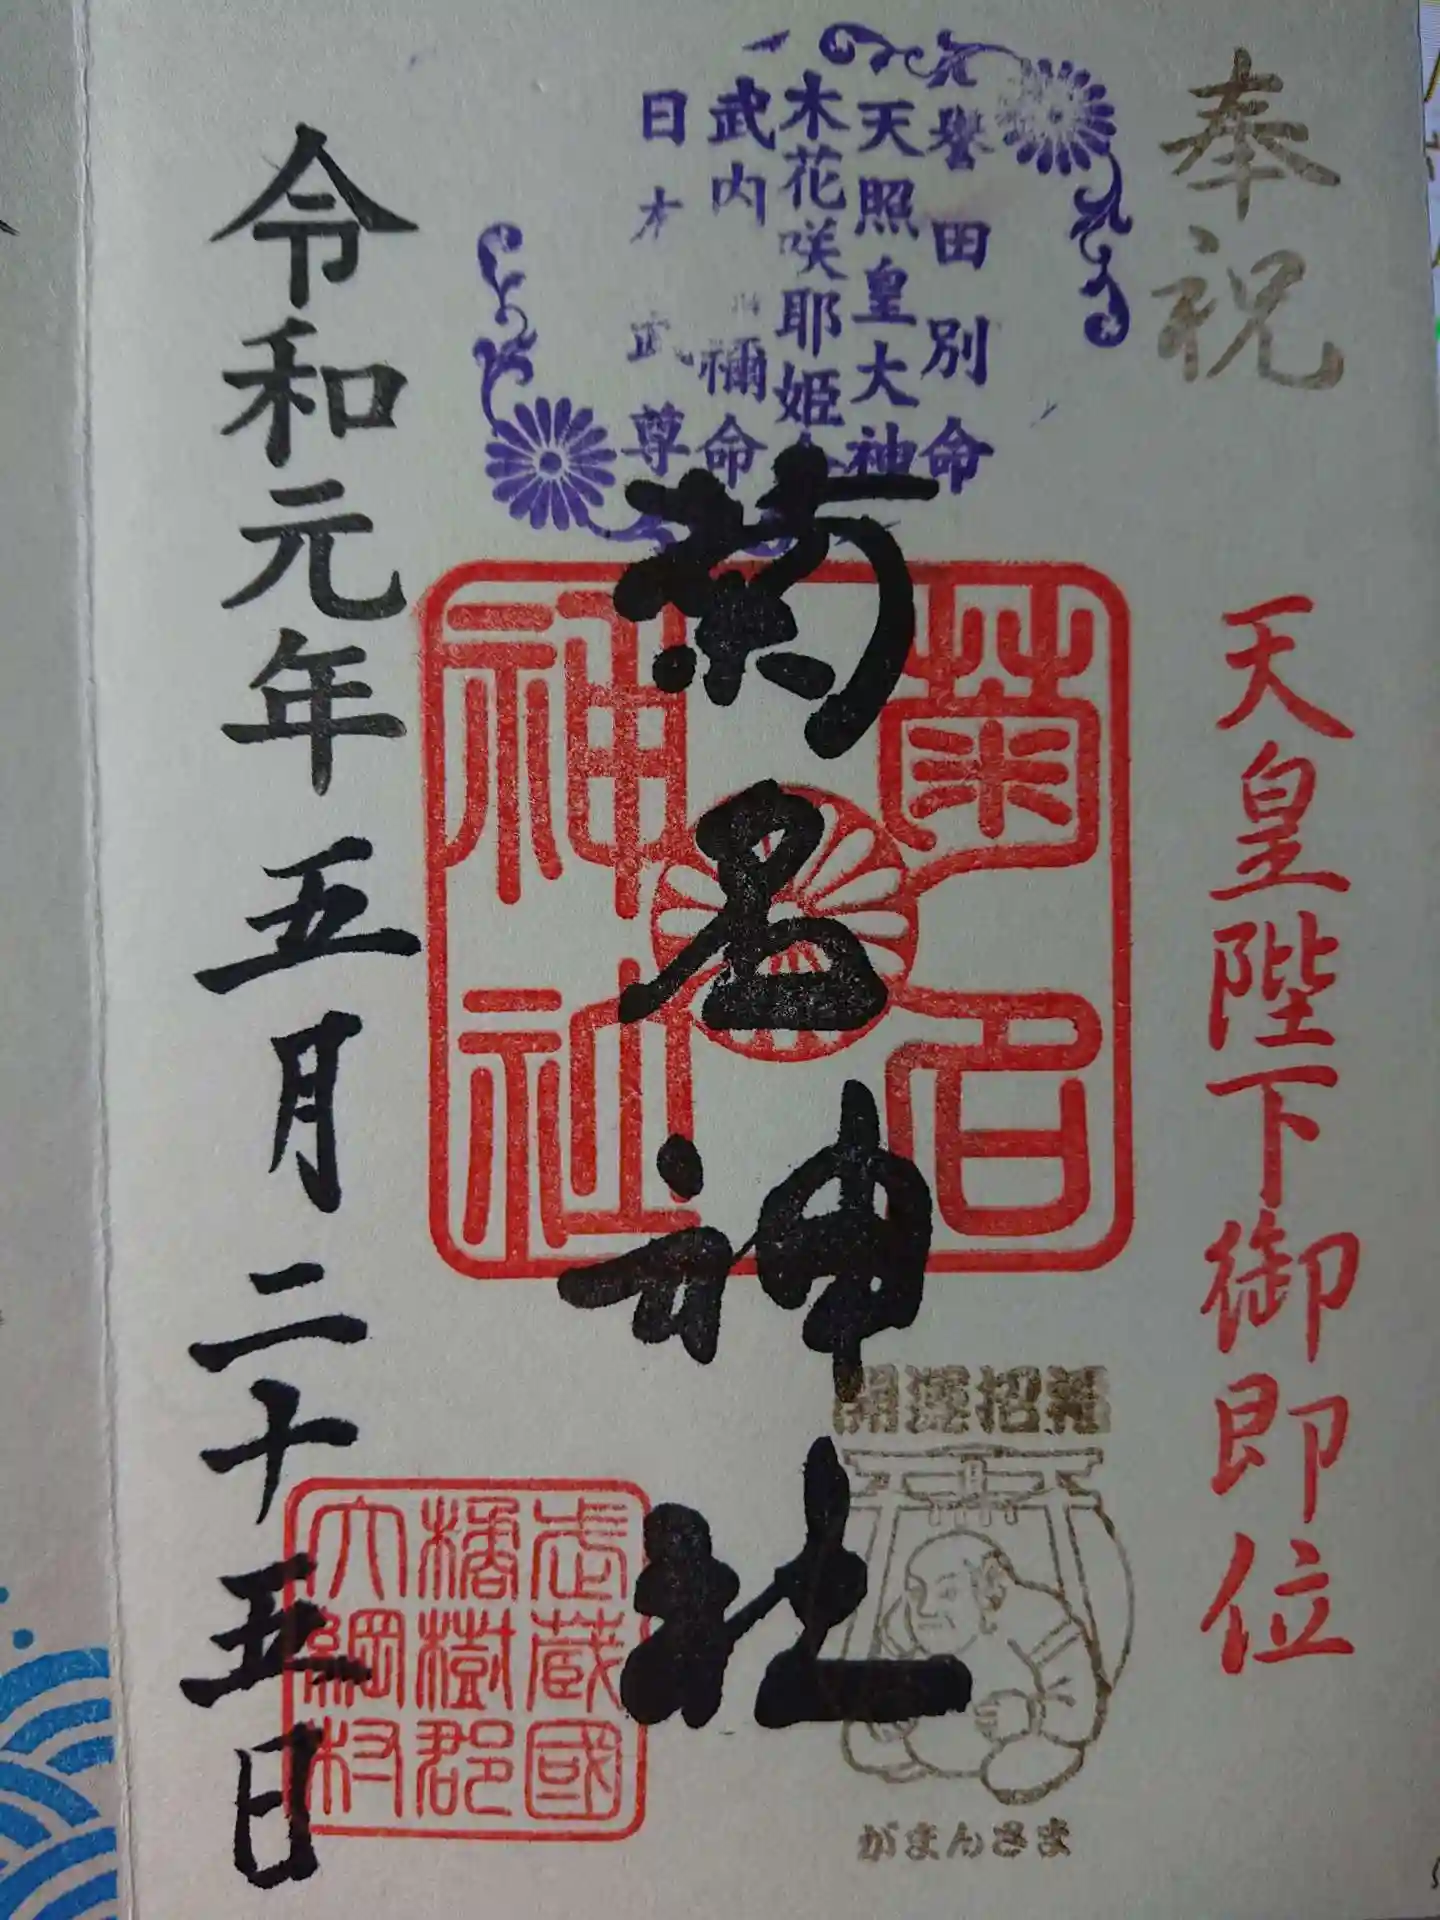 奉祝
天皇陛下御即位
誉田別命
天照皇大神
木花咲耶姫命
武内
禰命
日本武尊
菊名神社
菊名
神社
開運招福
がまんさま
令和元年五月二十五日
武蔵國
橘樹郡
大綱村